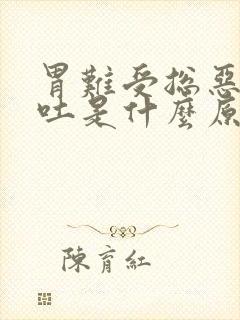 胃難受總惡
吐是什麼原
陳育紅